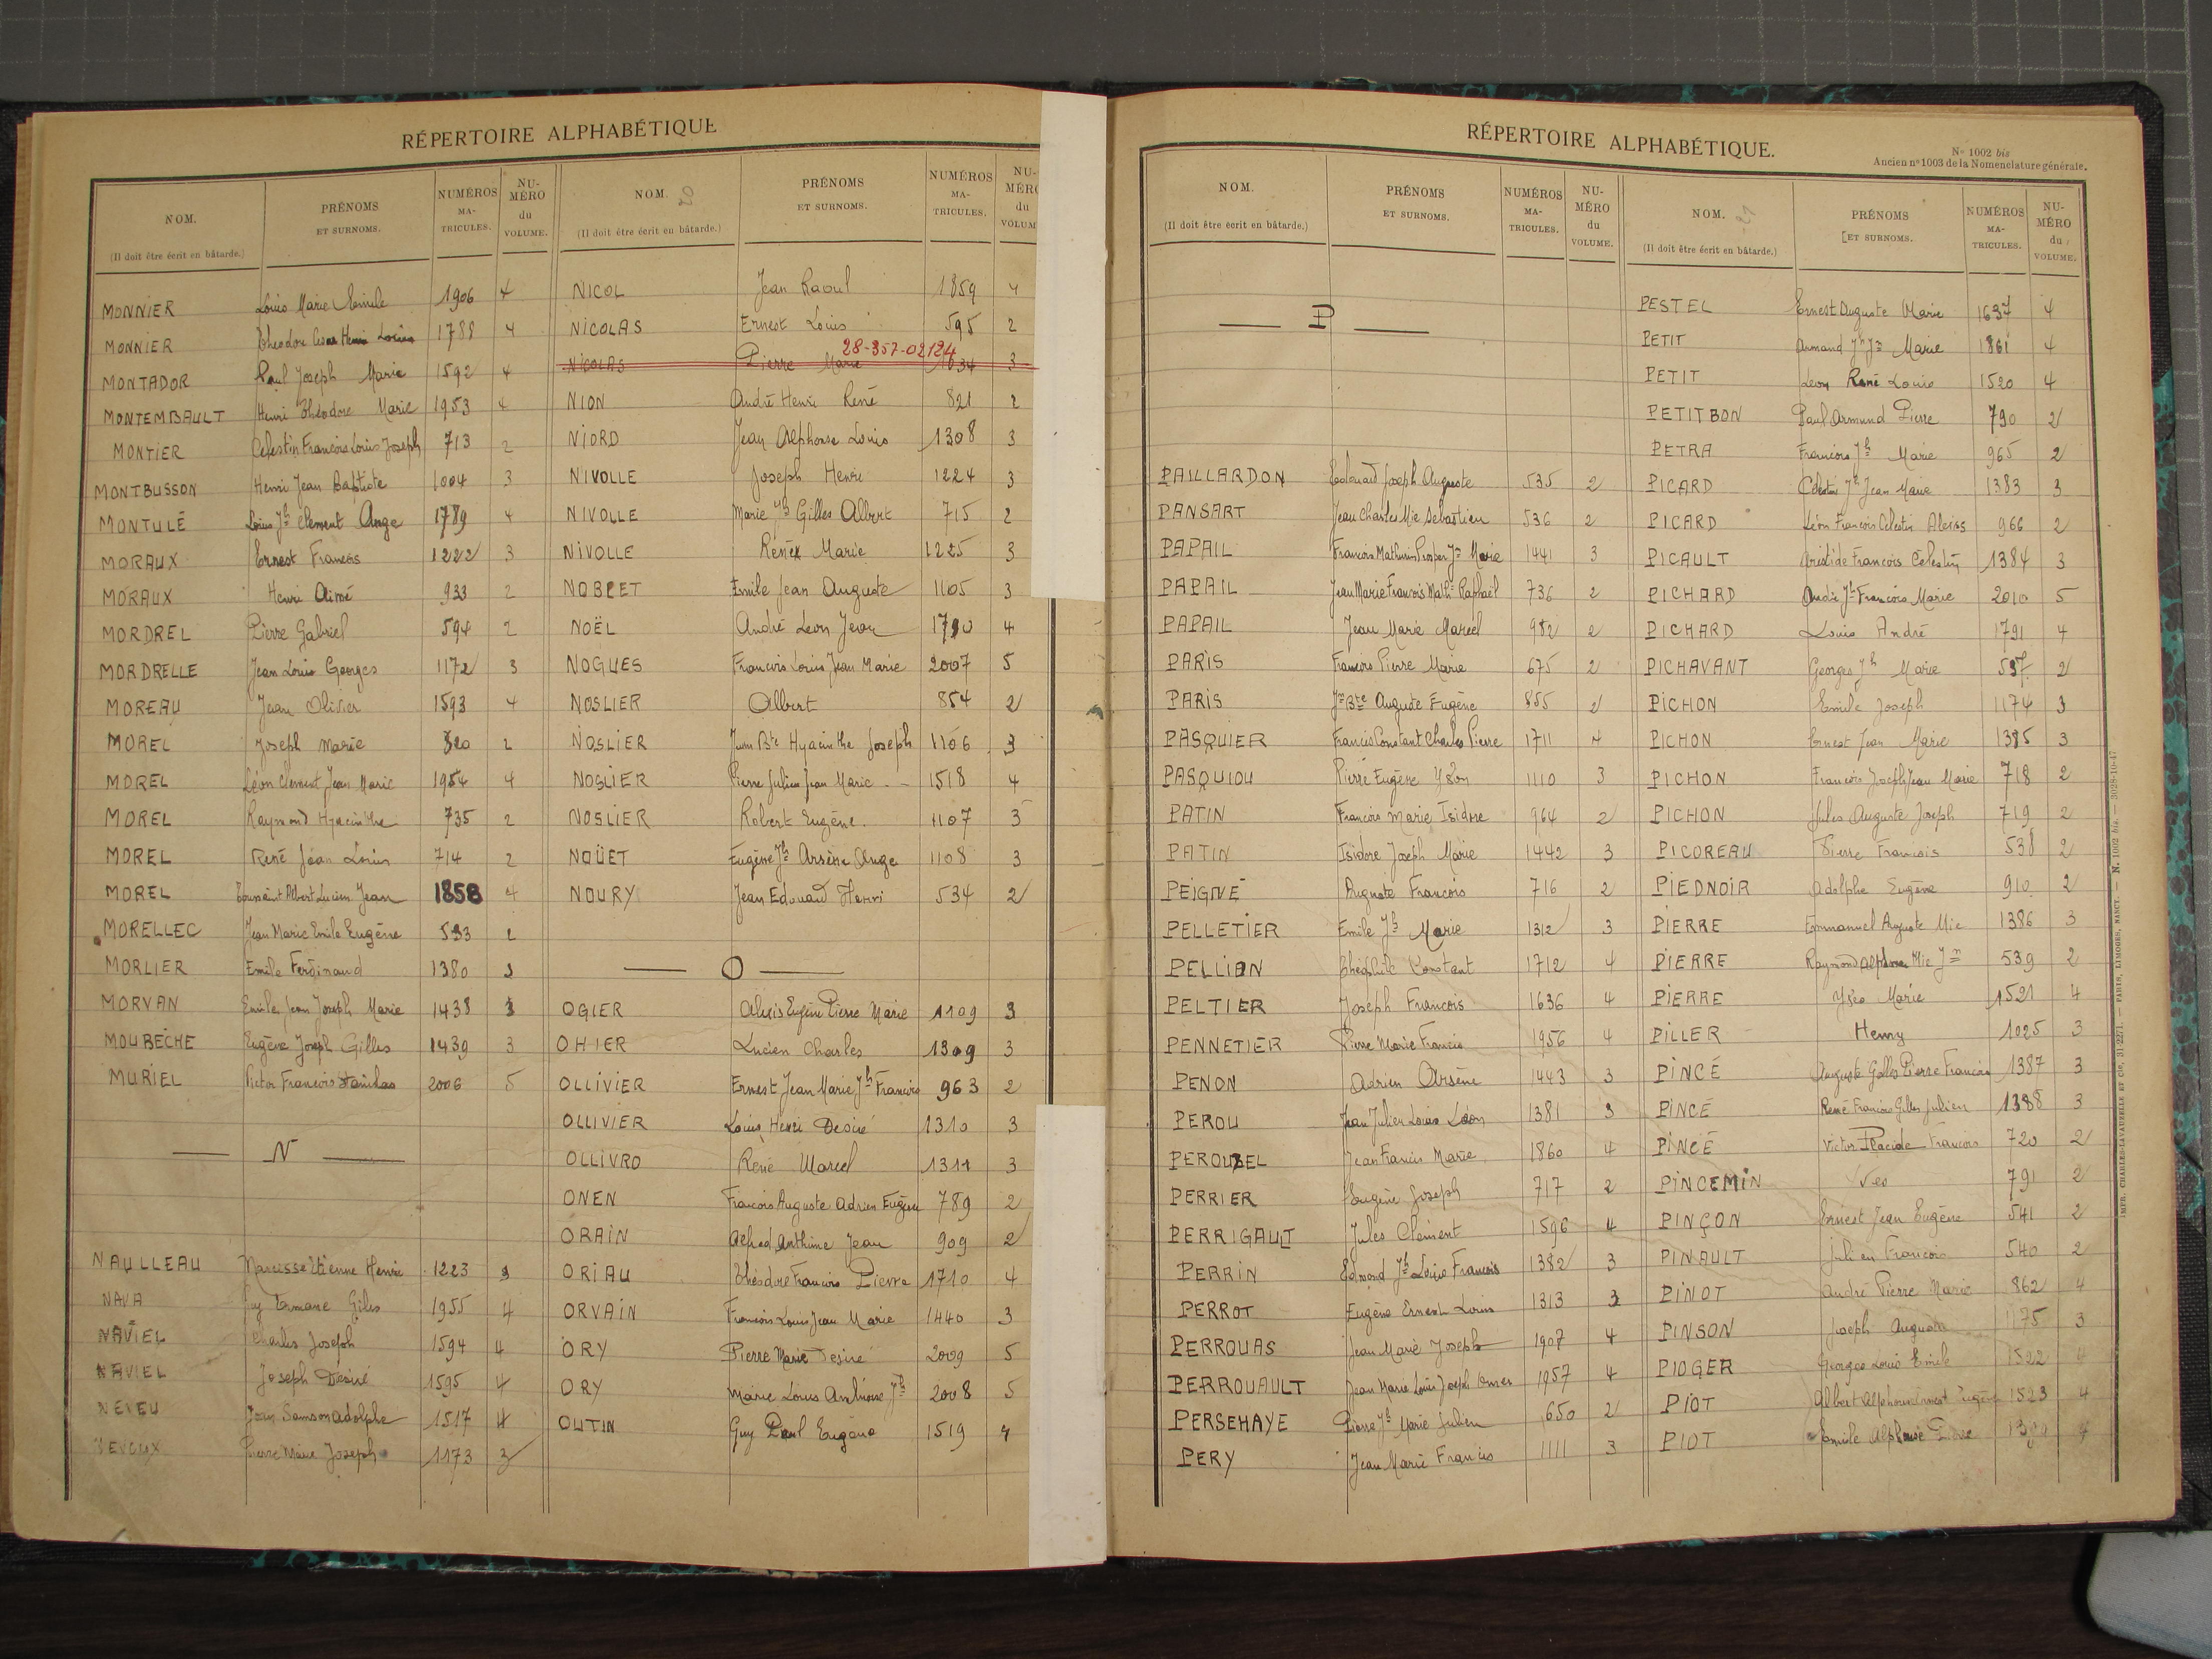 RÉPERTOIRE ALPHABÉTIQUE
NOM. (Il doit être écrit en bâtarde.) PRÉNOMS ET SURNOMS. NUMÉROS MA-TRICULES. NU-MÉRO du VOLUME.
MONNIER Louis Marie Emile 1906 4
MONNIER Théodore Cesar Henri Louis 1788 4
MONTADOR Paul Joseph Marie 1592 4
MONTEMBAULT Henri Théodore Marie 1953 4
MONTIER Celestin François Louis Joseph 713 2
MONTBUSSON Henri Jean Baptiste 1004 3
MONTULÉ Louis Jh Clement Ange 1789 4
MORAUX Ernest Francois 1222 3
MORAUX Henri Aimé 933 2
MORDREL Pierre Gabriel 594 2
MORDRELLE Jean Louis Georges 1172 3
MOREAU Jean Olivier 1593 4
MOREL Joseph Marie 320 2
MOREL Léon Clement Jean Marie 1954 4
MOREL Raymond Hyacinthe 735 2
MOREL René Jean Louis 714 2
MOREL Toussaint Albert Lucien Jean 1858 4
MORELLEC Jean Marie Emile Eugène 533 2
MORLIER Emile Ferdinand 1380 3
MORVAN Emile Jean Joseph Marie 1438 3
MOUBÈCHE Eugène Joseph Gilles 1439 3
MURIEL Victor François Stanislas 2006 5
— N —
NAULLEAU Narcisse Etienne Henri 1223 3
NAVA Guy Giles 1955 4
NAVIEL Charles Joseph 1594 4
NAVIEL Joseph Désiré 1595 4
NEVEU Jean Samson Adolphe 1517 4
NEVOUX Pierre Marie Joseph 1173 3
NOM. (Il doit être écrit en bâtarde.) PRÉNOMS ET SURNOMS. NUMÉROS MA-TRICULES. NU-MÉRO du VOLUM
NICOL Jean Raoul 1859 4
NICOLAS Ernest Louis 595 2
28-357-02124
NICOLAS Pierre Marie 1634 3
NION André Henri René 821 2
NIORD Jean Alphonse Louis 1308 3
NIVOLLE Joseph Henri 1224 3
NIVOLLE Marie Jh Gilles Albert 715 2
NIVOLLE René Marie 1225 3
NOBLET Emile Jean Auguste 1105 3
NOËL André Leon Jean 1790 4
NOGUES Francois Louis Jean Marie 2007 5
NOSLIER Albert 854 2
NOSLIER Jean Bte Hyacinthe Joseph 1106 3
NOSLIER Pierre Julien Jean Marie 1518 4
NOSLIER Robert Eugène 1107 3
NOÜET Eugène Jh Arsène Ange 1108 3
NOURY Jean Edouard Henri 534 2
— O —
OGIER Alexis Eugène Pierre Marie 1109 3
OHIER Lucien Charles 1309 3
OLLIVIER Ernest Jean Marie Jh Francois 963 2
OLLIVIER Louis Henri Desiré 1310 3
OLLIVRO René Marcel 1311 3
ONEN Francois Auguste Adrien Eugène 789 2
ORAIN Alfred Anthime Jean 909 2
ORIAU Théodore Francois Pierre 1710 4
ORVAIN Francois Louis Jean Marie 1440 3
ORY Pierre Marie Desiré 2009 5
ORY Marie Louis Ambroise Jh 2008 5
OUTIN Guy Paul Eugène 1519 4
RÉPERTOIRE ALPHABÉTIQUE.
No 1002 bis
Ancien no 1003 de la Nomenclature générale.
NOM. (Il doit être écrit en bâtarde.) PRÉNOMS ET SURNOMS. NUMÉROS MA-TRICULES. NU-MÉRO du VOLUME.
— P —
PAILLARDON Edouard Joseph Auguste 535 2
PANSART Jean Charles Mie Sebastien 536 2
PAPAIL Francois Mathurin Prosper Jn Marie 1441 3
PAPAIL Jean Marie Francois Math. Raphaël 736 2
PAPAIL Jean Marie Marcel 982 2
PARIS François Pierre Marie 675 2
PARIS Jn Bte Auguste Eugène 855 2
PASQUIER Francis Constant Charles Pierre 1711 4
PASQUIOU Pierre Eugène Yvon 1110 3
PATIN Francois Marie Isidore 964 2
PATIN Isidore Joseph Marie 1442 3
PEIGNÉ Auguste Francois 716 2
PELLETIER Emile Jh Marie 1312 3
PELLION Théophile Constant 1712 4
PELTIER Joseph Francois 1636 4
PENNETIER Pierre Marie Francis 1956 4
PENON Adrien Arsène 1443 3
PEROU Jean Julien Louis Léon 1381 3
PEROUZEL Jean Francis Marie 1860 4
PERRIER Eugène Joseph 717 2
PERRIGAULT Jules Clément 1596 4
PERRIN Edmond Jh Louis Francois 1382 3
PERROT Eugène Ernest Louis 1313 3
PERROUAS Jean Marie Joseph 1907 4
PERROUAULT Jean Marie Louis Joseph 1957 4
PERSEHAYE Pierre Jh Marie Julien 650 2
PERY Jean Marie Francis 1111 3
NOM. (Il doit être écrit en bâtarde.) PRÉNOMS ET SURNOMS. NUMÉROS MA-TRICULES. NU-MÉRO du VOLUME.
PESTEL Ernest Auguste Marie 1637 4
PETIT Armand Jh Jn Marie 1861 4
PETIT Leon René Louis 1520 4
PETITBON Paul Armand Pierre 790 2
PETRA Francois Jh Marie 965 2
PICARD Célestin Jh Jean Marie 1383 3
PICARD Léon François Celestin Alexis 966 2
PICAULT Aristide Francois Célestin 1384 3
PICHARD André Jh Francois Marie 2010 5
PICHARD Louis André 1791 4
PICHAVANT Georges Jh Marie 537 2
PICHON Emile Joseph 1174 3
PICHON Ernest Jean Marie 1385 3
PICHON François Joseph Jean Marie 718 2
PICHON Jules Auguste Joseph 719 2
PICOREAU Pierre Francois 538 2
PIEDNOIR Adolphe Eugène 910 2
PIERRE Emmanuel Auguste Mie 1386 3
PIERRE Raymond Alphonse Mie Jn 539 2
PIERRE Marie 1521 4
PILLER Henry 1025 3
PINCÉ Auguste Gilles Pierre Francois 1387 3
PINCÉ René François Gilles Julien 1388 3
PINCÉ Victor Placide Francois 720 2
PINCEMIN 791 2
PINÇON Ernest Jean Eugène 541 2
PINAULT Julien Francois 540 2
PINOT André Pierre Marie 862 4
PINSON Joseph Auguste 1175 3
PIOGER Georges Louis Emile 1522 4
PIOT Albert Alphonse Ernest Eugène 1523 4
PIOT Emile Alphonse Pierre
IMPR. CHARLES-LAVAUZELLE ET Cie, 31-2271. — PARIS, LIMOGES, NANCY. — N. 1002 bis. 3028-10-47